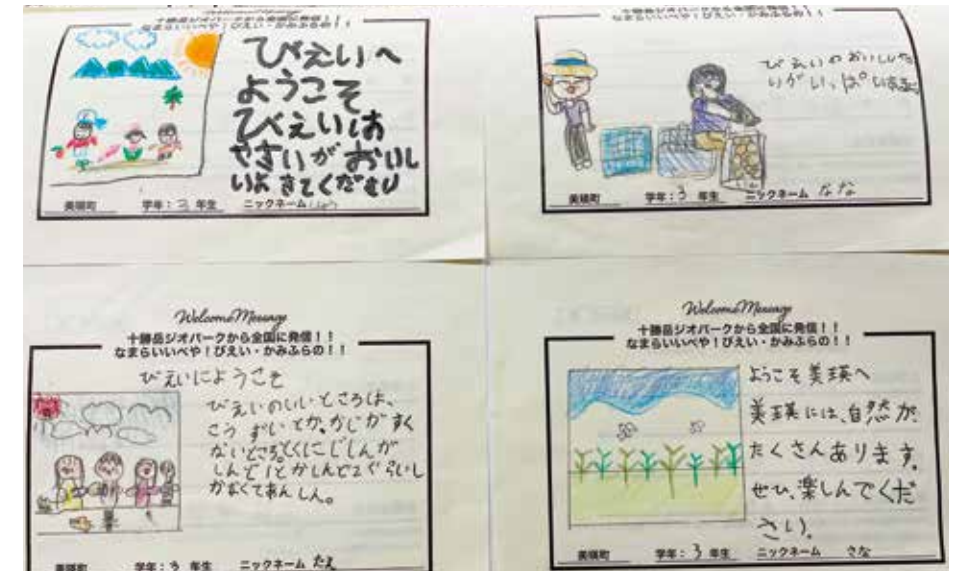 十勝岳ジオパークから全国に発信!!
なまらいいべや!びえい・かみふらの!!
びえいへ
ようこそ
びえいは
やさいがおいし
いよ きてくださり
美瑛町 学年:3年生 ニックネーム
なまらいいべや!びえい・かみふらの!!
びえいのおいしいや
いがいっぱい
美瑛町 学年:3年生 ニックネーム なな
Welcome Message
十勝岳ジオパークから全国に発信!!
なまらいいべや!びえい・かみふらの!!
びえいにようこそ
びえいのいいところは、
こうずいとか、かじがすく
ないところ。とくにじしんが
しんど1とかしんど2ぐらいし
かなくてあんしん。
美瑛町 学年:3年生 ニックネーム たえ
Welcome Message
十勝岳ジオパークから全国に発信!!
なまらいいべや!びえい・かみふらの!!
ようこそ美瑛へ
美瑛には、自然が、
たくさんあります。
ぜひ、楽しんでくだ
さい。
美瑛町 学年:3年生 ニックネーム さな